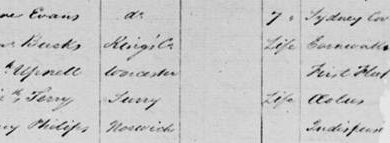 Evans do 7 " Sydney Co
Bucks King's Co Life Cornwall
Worcester First Fleet
Terry Surry Life Æolus
Philips Norwich Indispen